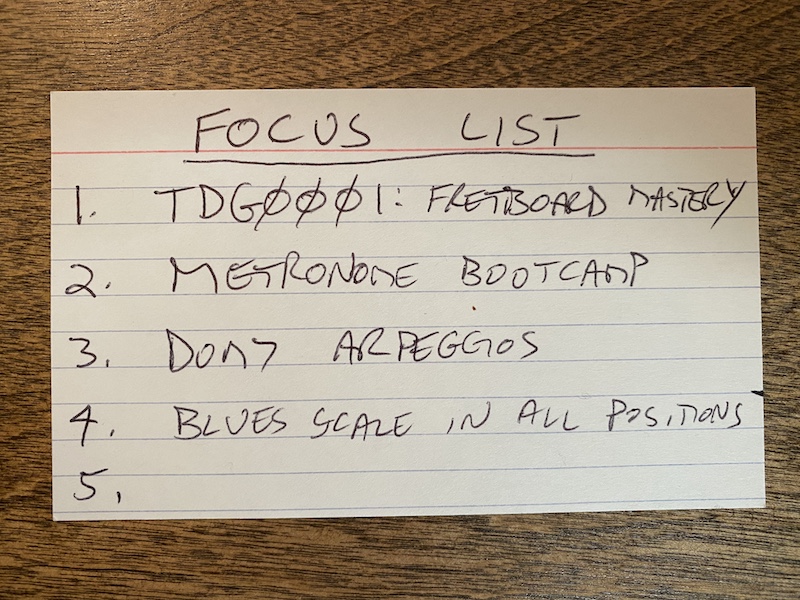 FOCUS LIST
1. TDG0001: FRETBOARD MASTERY
2. METRONOME BOOTCAMP
3. DOM7 ARPEGGIOS
4. BLUES SCALE IN ALL POSITIONS
5.